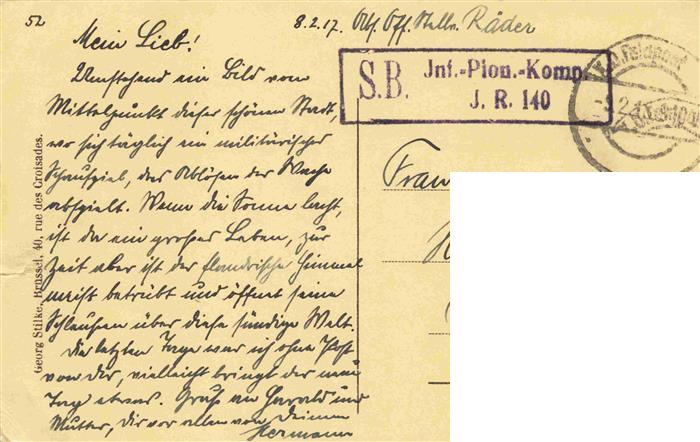 52
8.2.17. Abs. Off. Stellv. Räder
Mein Lieb!
Umstehend ein Bild vom
Mittelpunkt dieser schönen Stadt,
wo sich täglich ein militärisches
Schauspiel, das Ablösen der Wache
abspielt. Wenn die Sonne lacht,
ist da ein großes Leben, zur
Zeit aber ist der flandrische Himmel
meist betrübt und öffnet seine
Schleusen über diese sündige Welt.
Die letzten Tage war ich ohne Post
von Dir, vielleicht bringt der neue
Tag etwas. Gruß an Harald und
Mutter, Dir vor allem von Deinem
Hermann
S.B. Inf.-Pion.-Komp.
J. R. 140
K.D. Feldpost
Frau
Georg Stilke, Brüssel, 40, rue des Croisades.